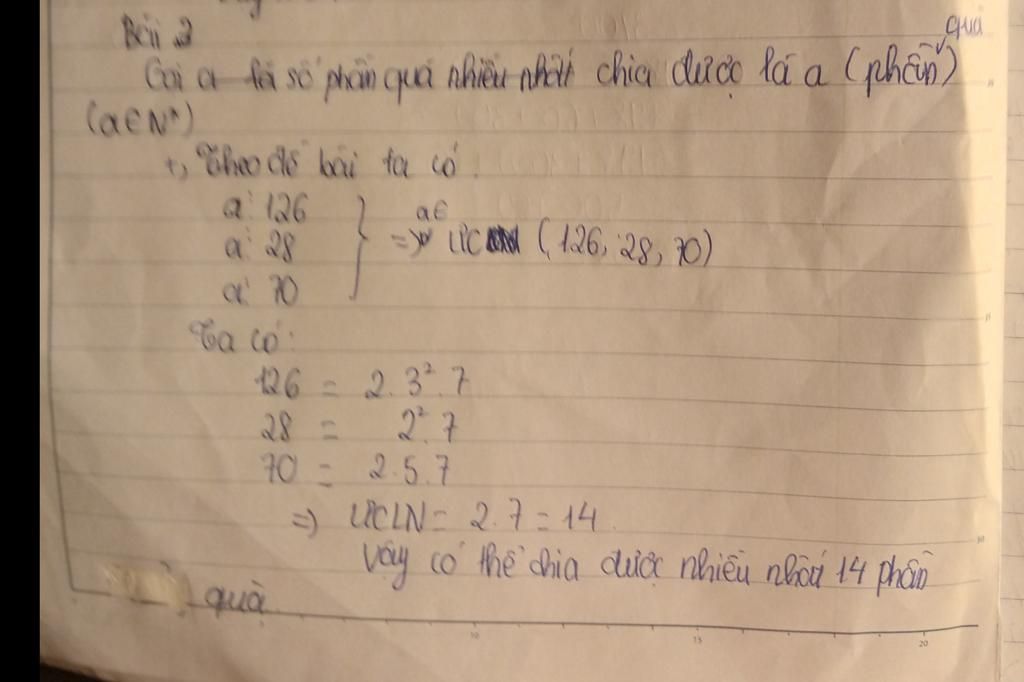 Bài 2
quà
Gọi a là số phần quà nhiều nhất chia được là a (phần)
(a∈N*)
+, Theo đề bài ta có:
a ⋮ 126
a ⋮ 28
a ⋮ 70
} => a∈ ƯC (126, 28, 70)
Ta có:
126 = 2.3².7
28 = 2².7
70 = 2.5.7
=> ƯCLN = 2.7 = 14
Vậy có thể chia được nhiều nhất 14 phần
quà.
10 15 20